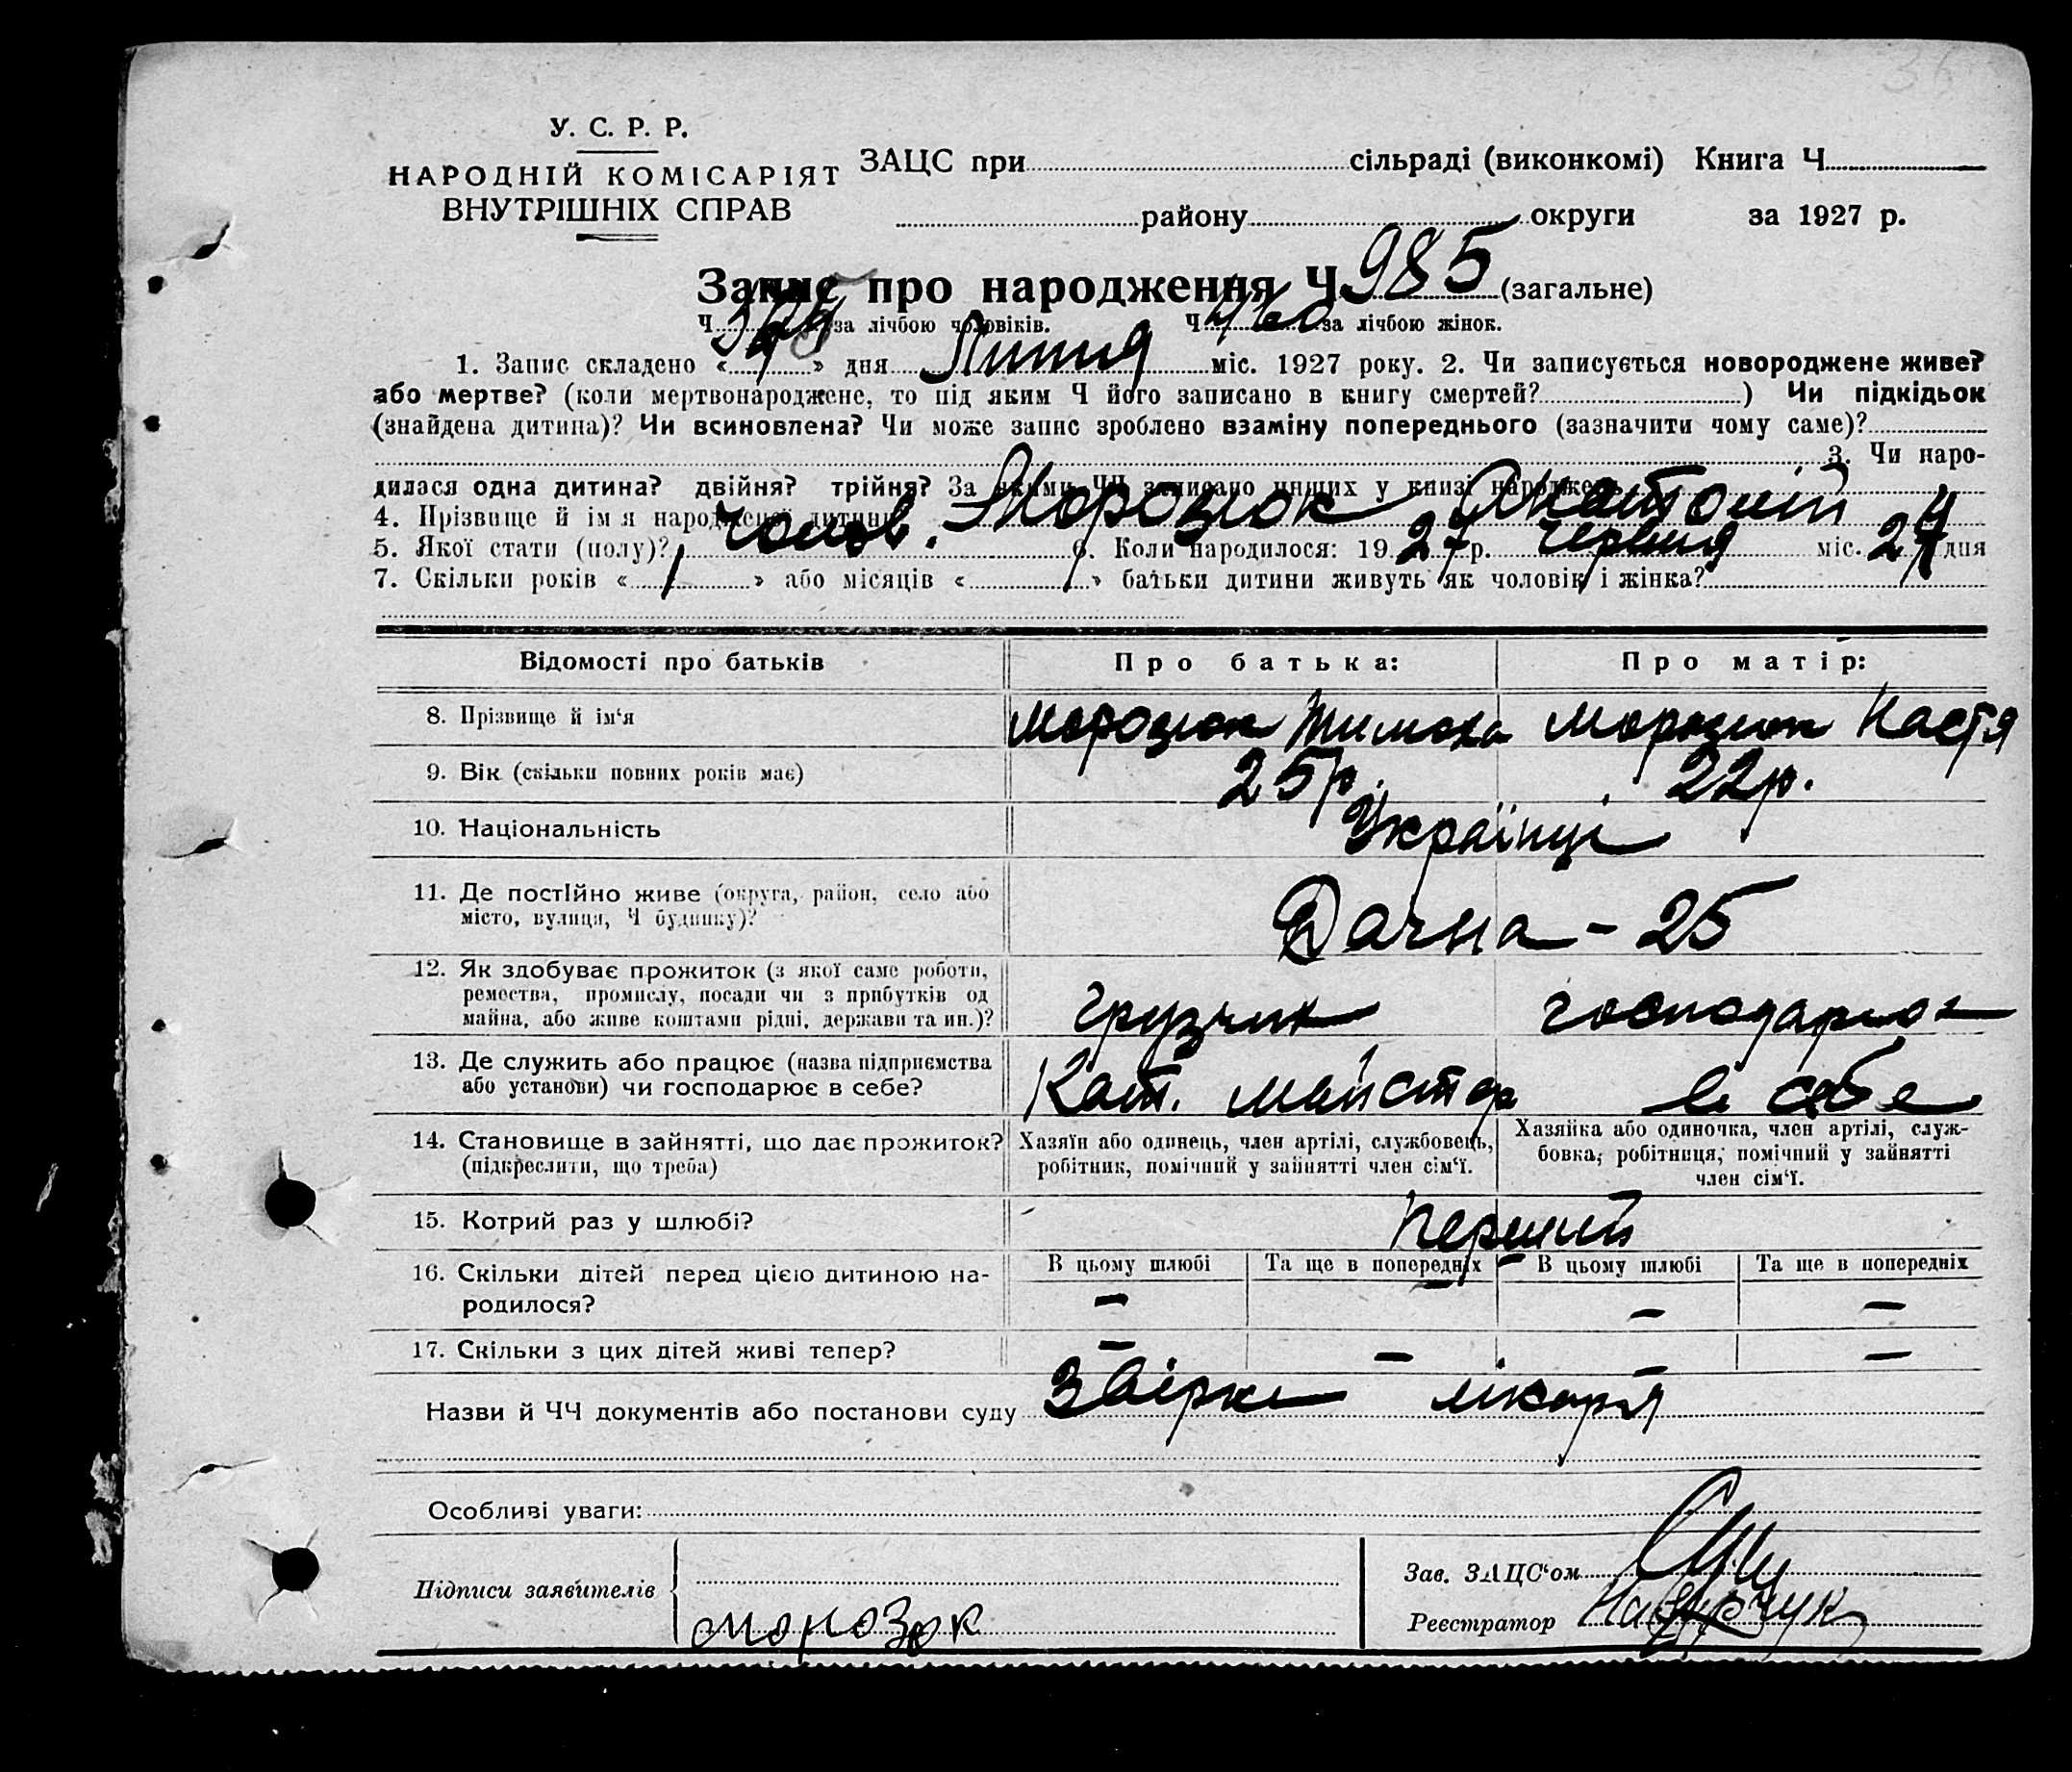 36
У. С. Р. Р.
НАРОДНІЙ КОМІСАРІЯТ
ВНУТРІШНІХ СПРАВ
ЗАЦС при сільраді (виконкомі) Книга Ч
району округи за 1927 р.
Запис про народження Ч 985 (загальне)
Ч за лічбою чоловіків. Ч 460 за лічбою жінок.
1. Запис складено « » дня Липня міс. 1927 року. 2. Чи записується новороджене живе?
або мертве? (коли мертвонароджене, то під яким Ч його записано в книгу смертей? ) Чи підкідьок
(знайдена дитина)? Чи всиновлена? Чи може запис зроблено взаміну попереднього (зазначити чому саме)?
3. Чи наро-
дилася одна дитина? двійня? трійня? За якими ЧЧ записано инших у книзі народжень
4. Прізвище й ім'я народженої дитини Морозюк Анатолій
5. Якої стати (полу)? чолов. 6. Коли народилося: 1927 р. червня міс. 24 дня
7. Скільки років « / » або місяців « / » батьки дитини живуть як чоловік і жінка?
Відомості про батьків Про батька: Про матір:
8. Прізвище й ім'я Морозюк Тимоха Морозюк Настя
9. Вік (скільки повних років має) 25 р. 22 р.
10. Національність Українці
11. Де постІйно живе (округа, район, село або
місто, вулиця, Ч будинку)? Дачна – 25
12. Як здобуває прожиток (з якої саме роботи,
ремества, промислу, посади чи з прибутків од
майна, або живе коштами рідні, держави та ин.)? грузчик господарює
13. Де служить або працює (назва підприємства
або установи) чи господарює в себе? майстер в себе
14. Становище в зайнятті, що дає прожиток?
(підкреслити, що треба)
Хазяїн або одинець, член артілі, службовець,
робітник, помічний у зайнятті член сім'ї.
Хазяйка або одиночка, член артілі, служ-
бовка, робітниця, помічний у зайнятті
член сім'ї.
15. Котрий раз у шлюбі? перший
16. Скільки дітей перед цією дитиною на-
родилося?
В цьому шлюбі Та ще в попередніх В цьому шлюбі Та ще в попередніх
– – – –
17. Скільки з цих дітей живі тепер? – – – –
Назви й ЧЧ документів або постанови суду лікаря
Особливі уваги:
Підписи заявителів морозюк
Зав. ЗАЦС'ом
Реєстратор